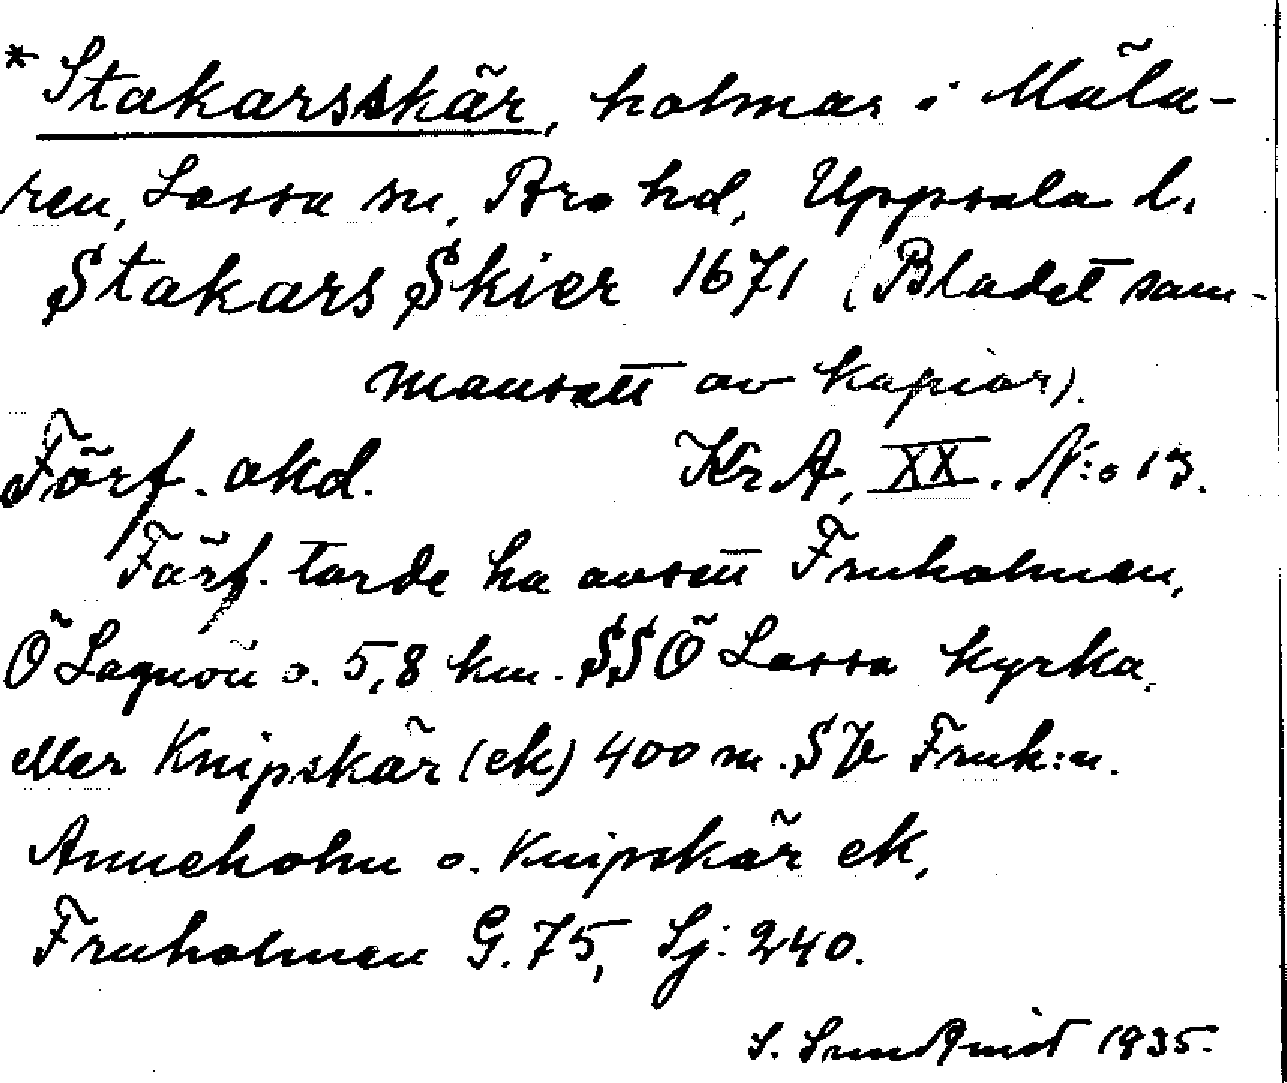 * Stakarsskär, holmar i Mäla-
ren, Lassa sn, Bro hd, Uppsala l.
Stakars Skier 1671 (Bladet sam-
mansatt av kopior).
Förf. okd. Kr A, XX. N:o 13.
Förf. torde ha avsett Fruholmen,
Ö Lagnön o. 5,8 km. SSÖ Lassa kyrka,
eller Knipskär (ek) 400 m. SV Fruh:n.
Anneholm o. Knipskär ek,
Fruholmen G. 75, Sj: 240.
S. Sundqvist 1935.